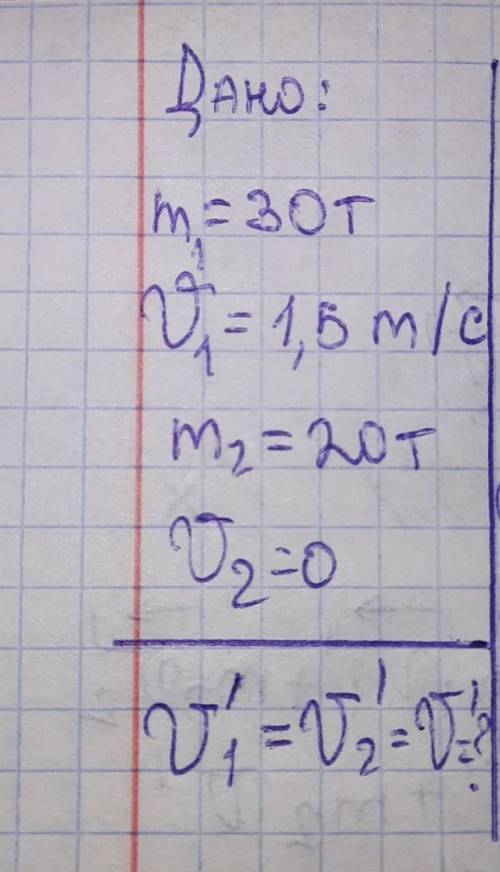 Дано:
m₁ = 30т
v₁ = 1,5 m/c
m₂ = 20т
v₂ = 0
v₁' = v₂' = v' = ?